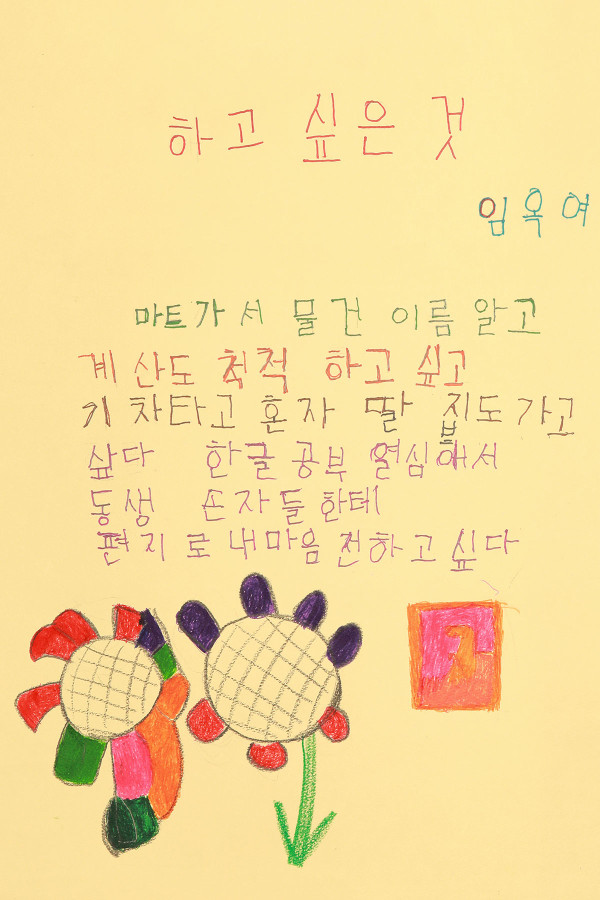 하고 싶은 것
임옥여
마트가서 물건 이름 알고
계산도 척척 하고 싶고
기차타고 혼자 딸 집도가고
싶다 한글 공부 열심애서
동생 손자들 한테
편지로 내마음 전하고 싶다